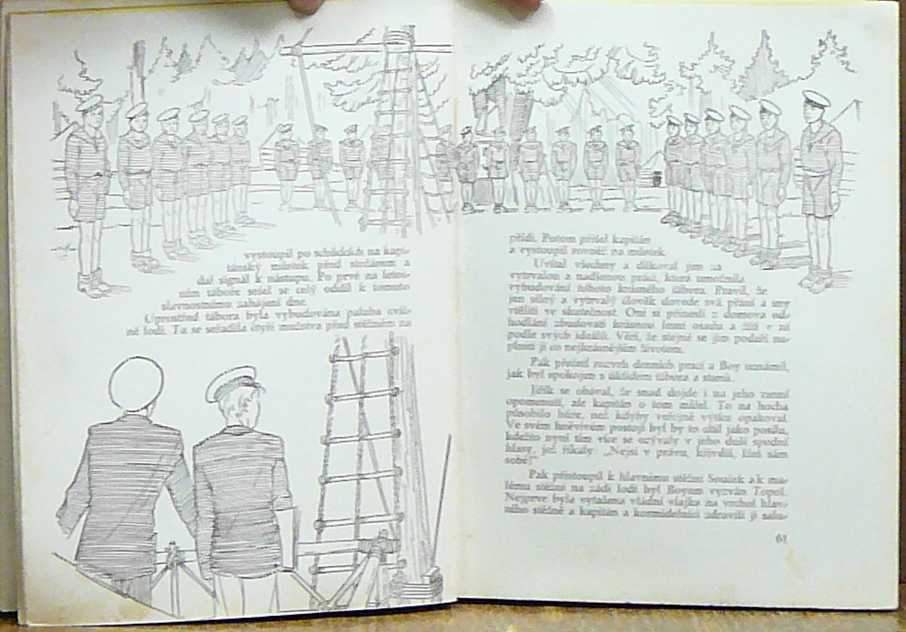 vystoupil po schůdcích na kapi-
tánský můstek před stožárem a
dal signál k nástupu. Po prvé na letoš-
ním táboře sešel se celý oddíl k tomuto
slavnostnímu zahájení dne.
Uprostřed tábora byla vybudována paluba cvič-
né lodi. Ta se seřadila čtyři mužstva před stěžněm na
přídi. Potom přišel kapitán
a vystoupil rovněž na můstek.
Uvítal všechny a děkoval jim za
vytrvalou a nadšenou práci, která umožnila
vybudování tohoto krásného tábora. Pravil, že
jen silný a vytrvalý člověk dovede svá přání a sny
vtělit ve skutečnost. Oni si přinesli z domova od-
hodlání zbudovati krásnou lesní osadu a žít v ní
podle svých ideálů. Věří, že stejně se jim podaří na-
plniti ji co nejkrásnějším životem.
Pak přečetl rozvrh denních prací a Boy oznámil,
jak byl spokojen s úklidem tábora a stanů.
Jiřík se obával, že snad dojde i na jeho ranní
opomenutí, ale kapitán o tom mlčel. To na hocha
působilo hůře, než kdyby veřejně výtku opakoval.
Ve svém hněvivém postoji byl by to cítil jako posilu,
kdežto nyní tím více se ozývaly v jeho duši spodní
hlasy, jež říkaly: „Nejsi v právu, křivdíš, šidíš sám
sebe!"
Pak přistoupil k hlavnímu stěžni Souček a k ma-
lému stěžni na zádi lodi byl Boyem vyzván Topol.
Nejprve byla vytažena vládní vlajka na vrchol hlav-
ního stěžně a kapitán a kormidelníci zdravili ji salu-
61